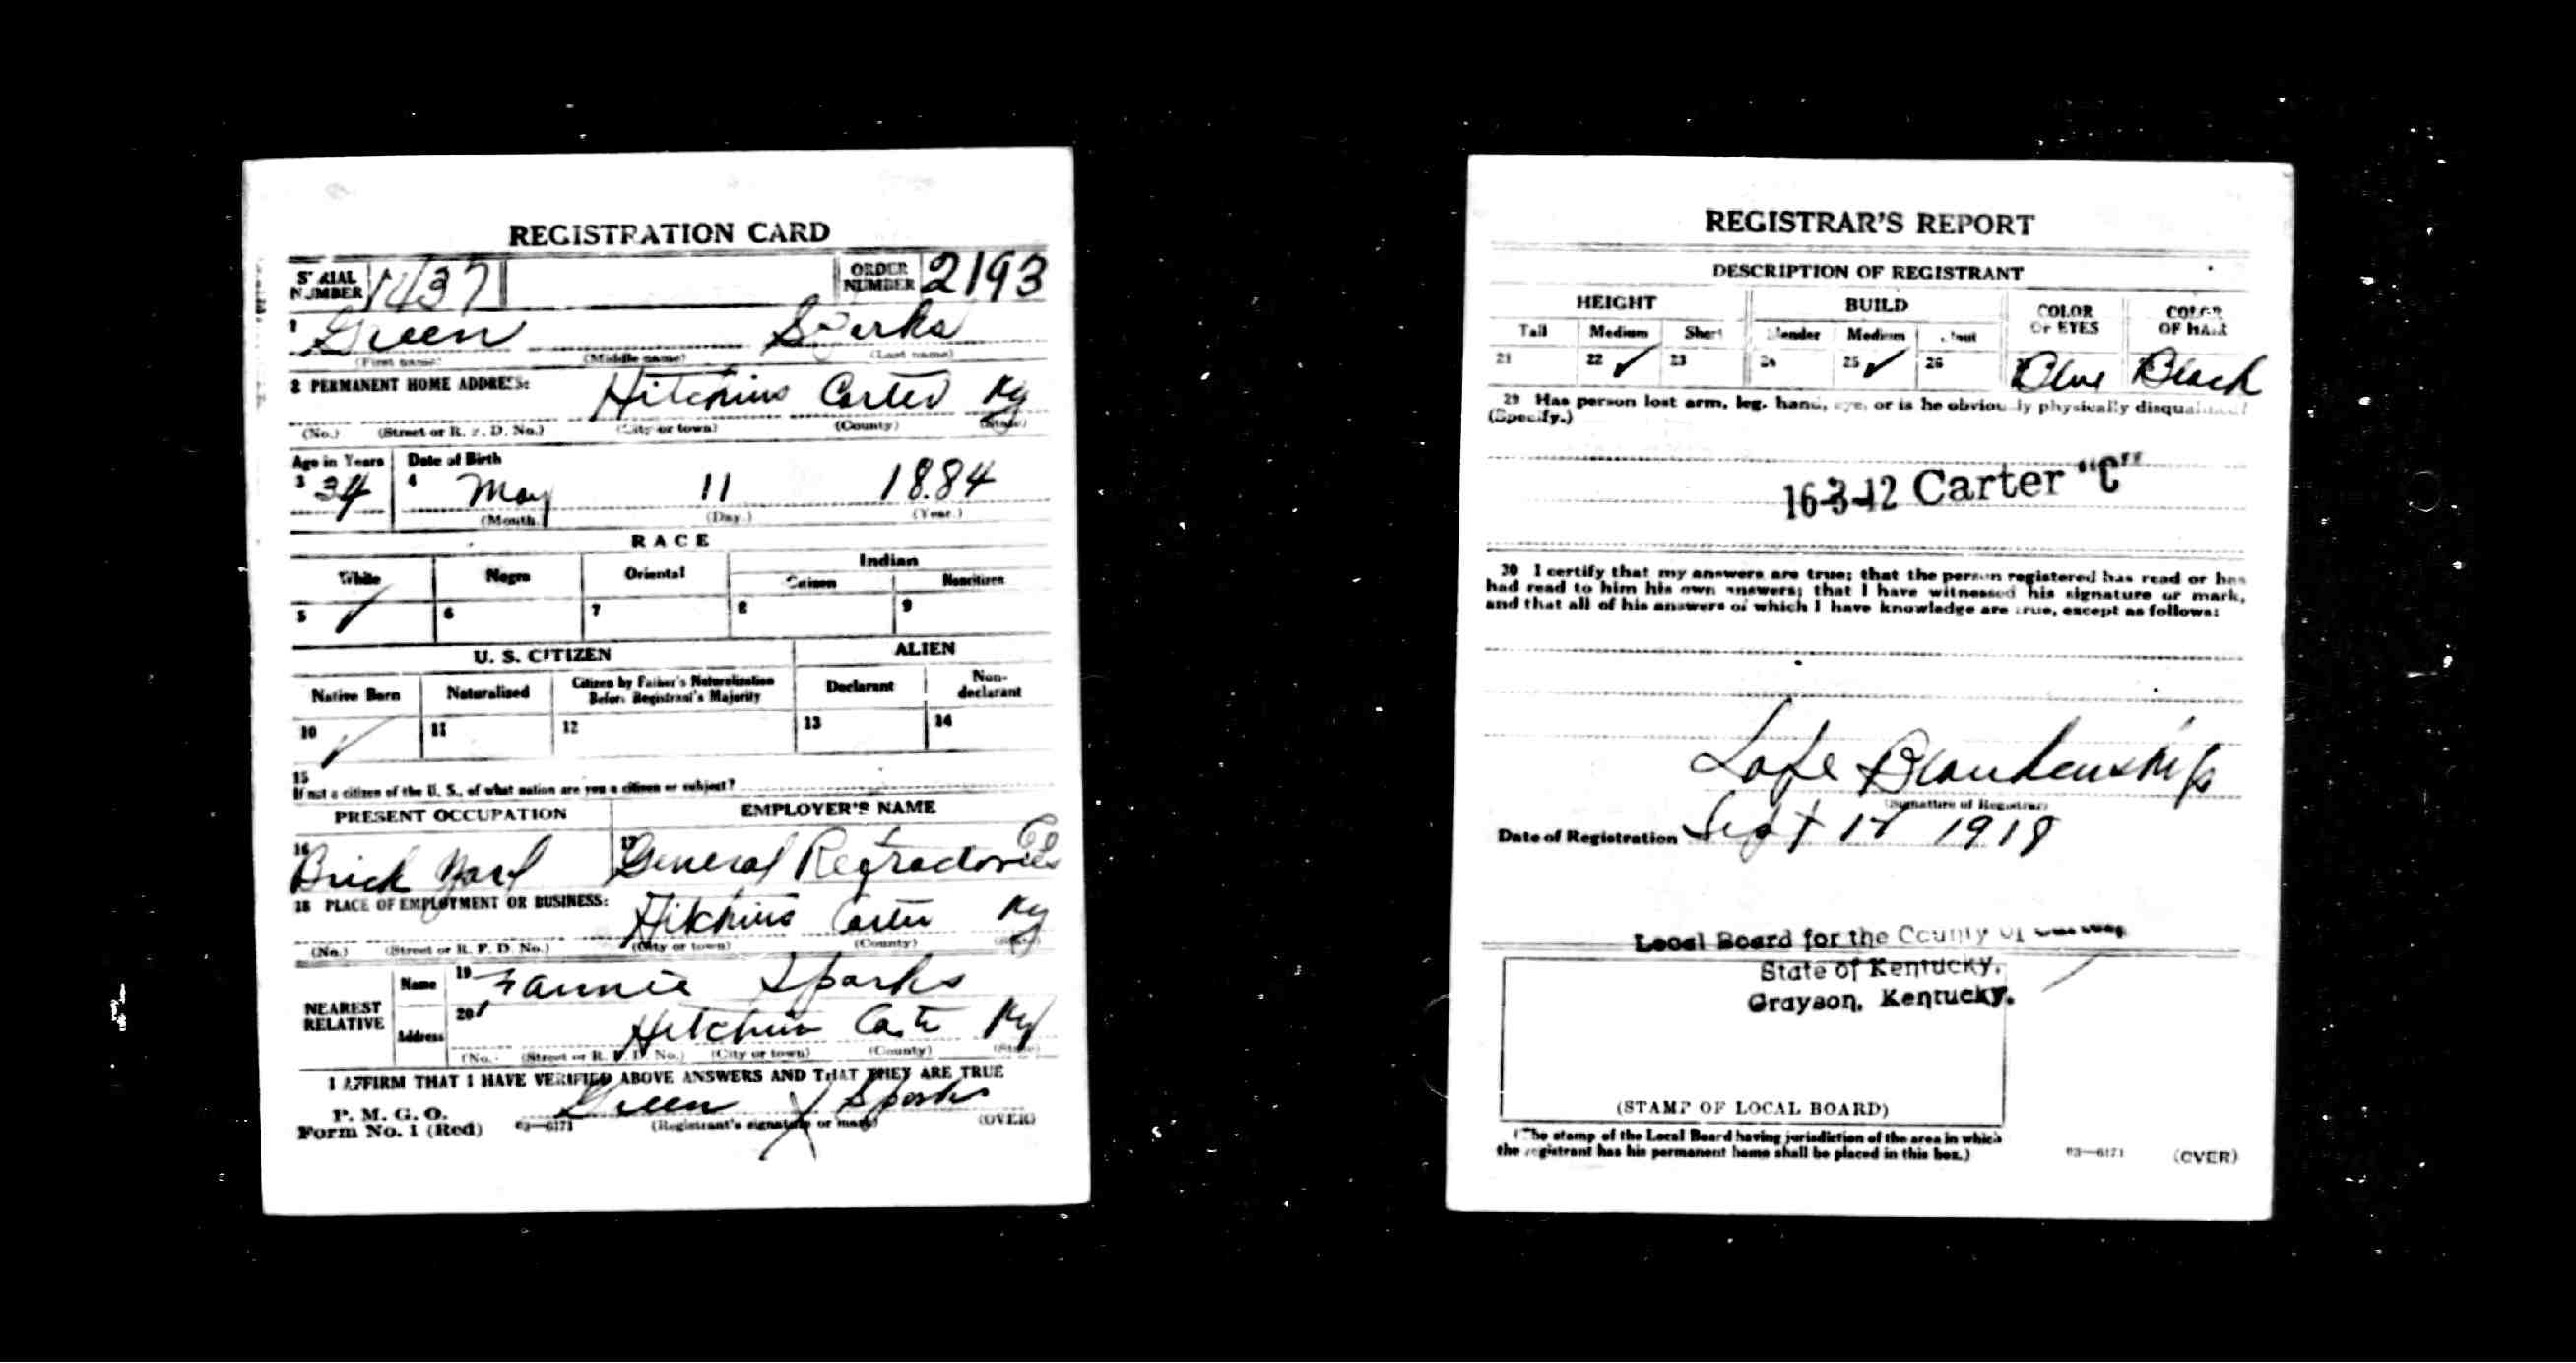 REGISTRATION CARD
SERIAL NUMBER 1437 ORDER NUMBER 2193
1 Green Sparks
(First name) (Middle name) (Last name)
2 PERMANENT HOME ADDRESS:
Hitchins Carter Ky
(No.) (Street or R. F. D. No.) (City or town) (County) (State)
Age in Years Date of Birth
3 34 4 May 11 1884
(Month.) (Day.) (Year.)
RACE
White Negro Oriental Indian
Citizen Noncitizen
5 ✓ 6 7 8 9
U. S. CITIZEN ALIEN
Native Born Naturalized Citizen by Father's Naturalization Before Registrant's Majority Declarant Non-declarant
10 ✓ 11 12 13 14
15
If not a citizen of the U. S., of what nation are you a citizen or subject?
PRESENT OCCUPATION EMPLOYER'S NAME
16 Brick Yard 17 General Refractories Co
18 PLACE OF EMPLOYMENT OR BUSINESS:
Hitchins Carter Ky
(No.) (Street or R. F. D. No.) (City or town) (County) (State)
NEAREST RELATIVE
Name 19 Fannie Sparks
Address 20 Hitchins Carter Ky
(No.) (Street or R. F. D. No.) (City or town) (County) (State)
I AFFIRM THAT I HAVE VERIFIED ABOVE ANSWERS AND THAT THEY ARE TRUE
P. M. G. O.
Form No. 1 (Red) 03—6171 Green X Sparks
(Registrant's signature or mark) (OVER)
REGISTRAR'S REPORT
DESCRIPTION OF REGISTRANT
HEIGHT BUILD COLOR OF EYES COLOR OF HAIR
Tall Medium Short Slender Medium Stout
21 22 ✓ 23 24 25 ✓ 26 Blue Black
29 Has person lost arm, leg, hand, eye, or is he obviously physically disqualified?
(Specify.)
16-3-12 Carter "C"
30 I certify that my answers are true; that the person registered has read or has
had read to him his own answers; that I have witnessed his signature or mark,
and that all of his answers of which I have knowledge are true, except as follows:
Lafe Blankenship
(Signature of Registrar)
Date of Registration Sept 12 1918
Local Board for the County of
State of Kentucky,
Grayson, Kentucky.
(STAMP OF LOCAL BOARD)
(The stamp of the Local Board having jurisdiction of the area in which
the registrant has his permanent home shall be placed in this box.)
03—6171 (OVER)